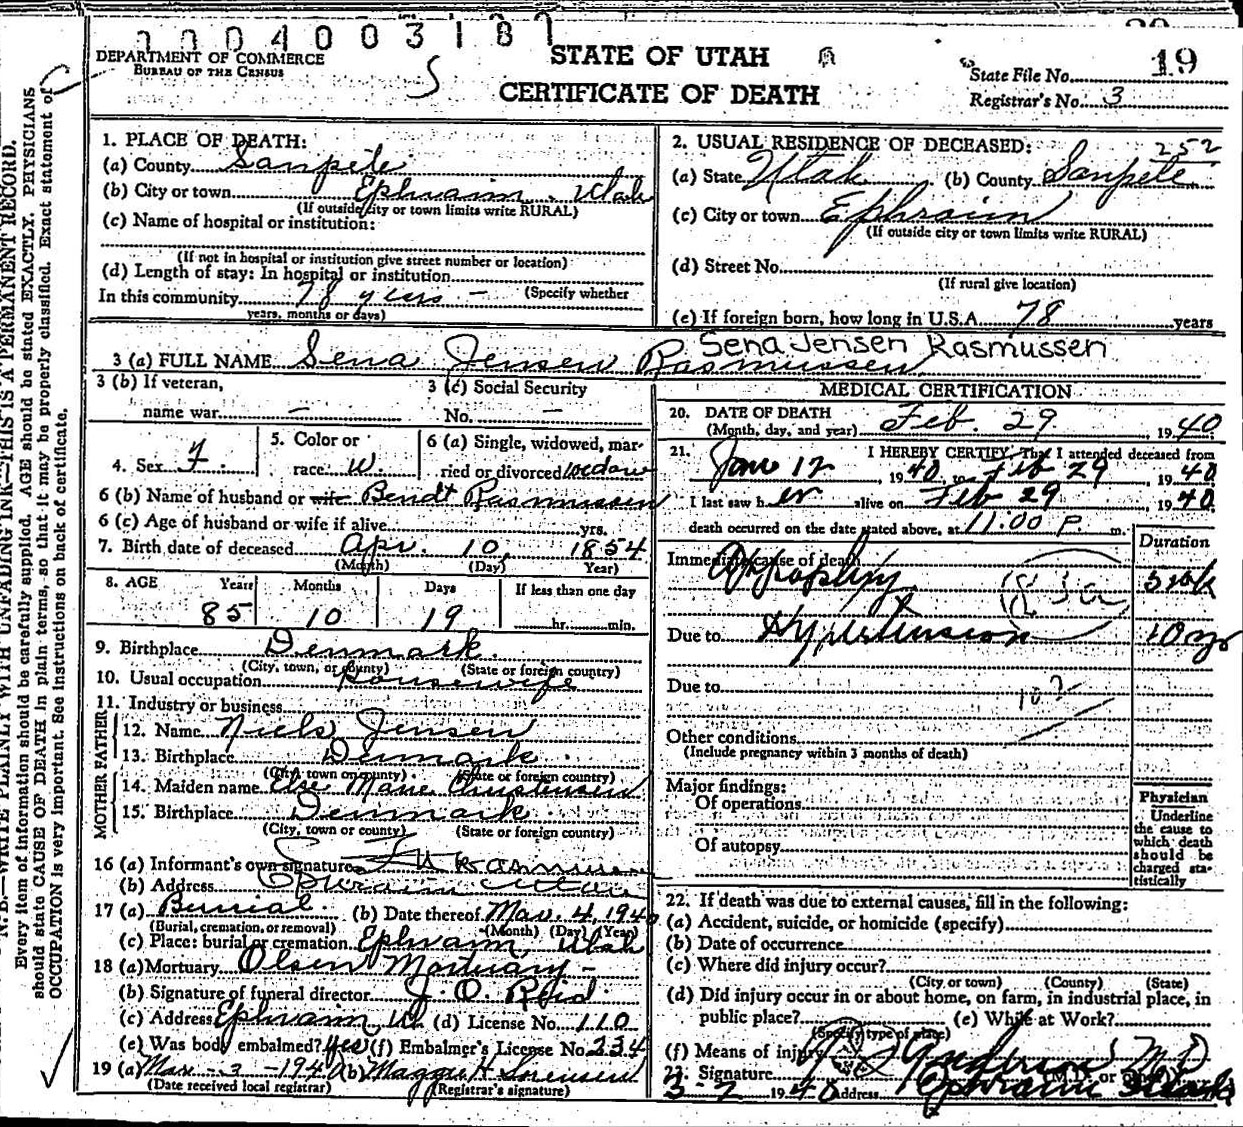 0004003187
DEPARTMENT OF COMMERCE
BUREAU OF THE CENSUS
STATE OF UTAH
CERTIFICATE OF DEATH
19
State File No.
Registrar's No. 3
N. B.—WRITE PLAINLY WITH UNFADING INK—THIS IS A PERMANENT RECORD.
Every item of information should be carefully supplied. AGE should be stated EXACTLY. PHYSICIANS
should state CAUSE OF DEATH in plain terms, so that it may be properly classified. Exact statement of
OCCUPATION is very important. See instructions on back of certificate.
1. PLACE OF DEATH:
(a) County Sanpete
(b) City or town Ephraim, Utah
(If outside city or town limits write RURAL)
(c) Name of hospital or institution:
(If not in hospital or institution give street number or location)
(d) Length of stay: In hospital or institution
In this community 78 years - (Specify whether
years, months or days)
2. USUAL RESIDENCE OF DECEASED: 252
(a) State Utah (b) County Sanpete
(c) City or town Ephraim
(If outside city or town limits write RURAL)
(d) Street No.
(If rural give location)
(e) If foreign born, how long in U.S.A. 78 years
Sena Jensen Rasmussen
3 (a) FULL NAME Sena Jensen Rasmussen
3 (b) If veteran,
name war –
3 (c) Social Security
No. –
4. Sex F.
5. Color or
race W.
6 (a) Single, widowed, mar-
ried or divorced
6 (b) Name of husband or wife Bendt Rasmussen
6 (c) Age of husband or wife if alive yrs.
7. Birth date of deceased Apr. 10, 1854
(Month) (Day) Year)
8. AGE Years Months Days If less than one day
85 10 19 hr. min.
9. Birthplace Denmark.
(City, town, or county) (State or foreign country)
10. Usual occupation Housewife
11. Industry or business
FATHER
12. Name Niels Jensen
13. Birthplace Denmark.
(City, town or county) (State or foreign country)
MOTHER
14. Maiden name Else Marie Christensen
15. Birthplace Denmark.
(City, town or county) (State or foreign country)
16 (a) Informant's own signature Rasmussen
(b) Address Ephraim Utah
17 (a) Burial. (b) Date thereof Mar. 4, 1940
(Burial, cremation, or removal) (Month) (Day) (Year)
(c) Place: burial or cremation Ephraim, Utah
18 (a) Mortuary Olsen Mortuary -
(b) Signature of funeral director
(c) Address Ephraim, Ut. (d) License No. 110
(e) Was body embalmed? Yes (f) Embalmer's License No. 334
19 (a) Mar - 3 - 1940 (b) Maggie H Sorensen
(Date received local registrar) (Registrar's signature)
MEDICAL CERTIFICATION
20. DATE OF DEATH
(Month, day, and year) Feb. 29, 1940
21. I HEREBY CERTIFY, That I attended deceased from
Jan 12 1940 to Feb 29, 1940
I last saw her alive on Feb 29, 1940
death occurred on the date stated above, at 11:00 P m.
Duration
Immediate cause of death Apoplexy 83a
Due to Hypertension 10 yr
Due to
Other conditions
(Include pregnancy within 3 months of death)
Major findings:
Of operations
Of autopsy
Physician
Underline
the cause to
which death
should be
charged sta-
tistically
22. If death was due to external causes, fill in the following:
(a) Accident, suicide, or homicide (specify)
(b) Date of occurrence
(c) Where did injury occur?
(City or town) (County) (State)
(d) Did injury occur in or about home, on farm, in industrial place, in
public place? (e) While at Work?
(Specify type of place)
(f) Means of injury
23. Signature M D
3-2 1940 Address Ephraim Utah